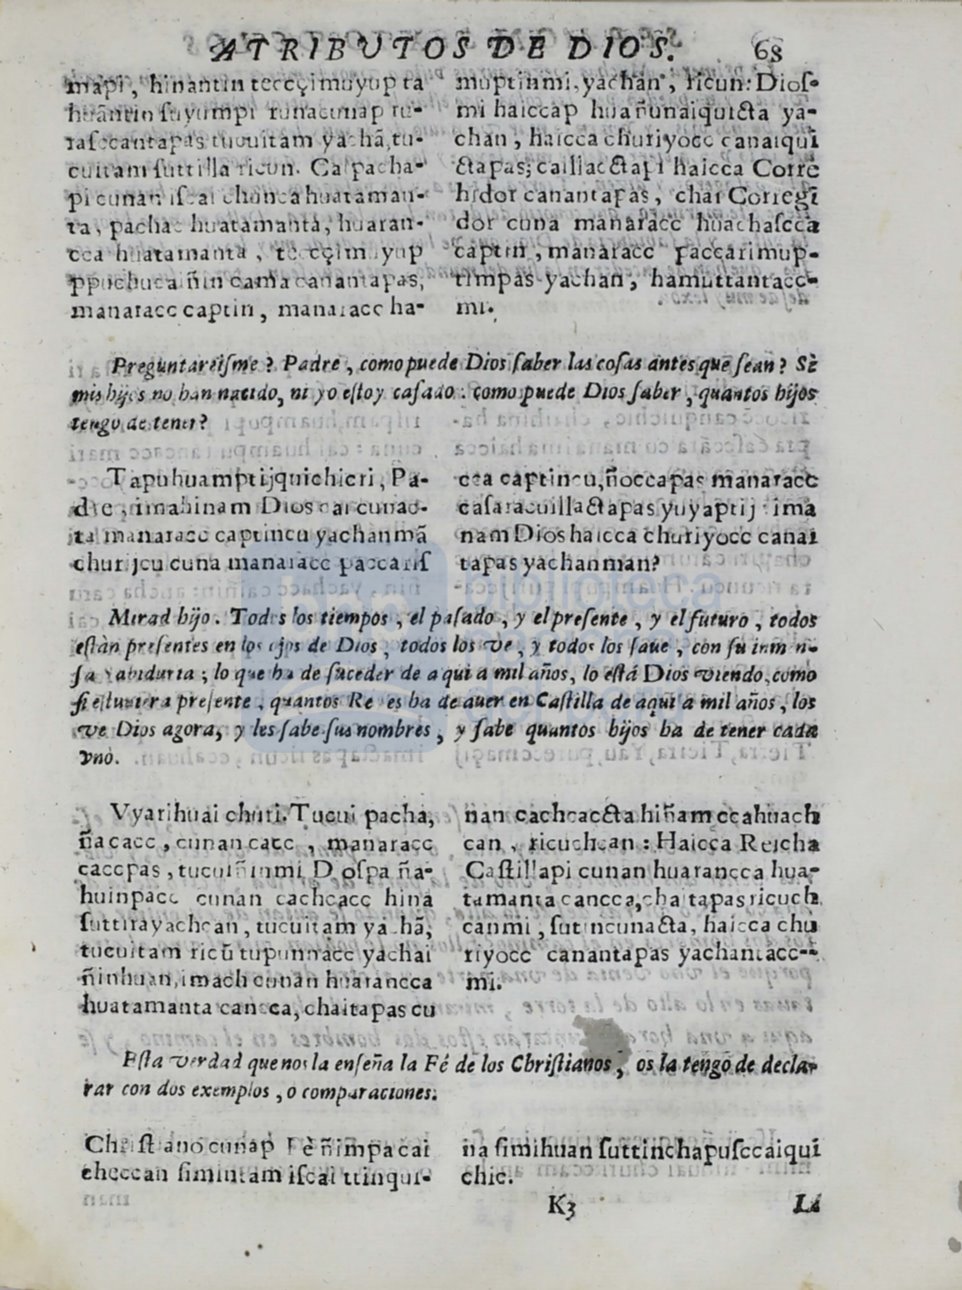 ATRIBUTOS DE DIOS. 68
mapi, hinantin tecçimuyup ta
huãntin suyumpi runacunap ru-
rascantapas tucuitam yachã, tu-
cuitam suttilla ricun. Caipacha-
pi cunan iscai chunca huataman-
ta, pachac huatamanta, huaran-
cca huatamanta, tecçim uyup
ppuchucañincamacanantapas,
manaracc captin, manaracc ha-
muptinmi, yachan, ricun: Dios-
mi haiccap huañunaiquicta ya-
chan, haicca churiyocc canaiqui
ctapas; caillactapi haicca Corre
hidor canantapas, chai Corregi
dor cuna manaracc huachascca
captin, manaracc paccarimup-
timpas yachan, hamuttantacc-
mi.
Preguntareisme? Padre, como puede Dios saber las cosas antes que sean? Sè
mis hijos no han nacido, ni yo estoy casado: como puede Dios saber, quantos hijos
tengo de tener?
Tapuhuamptijquichicri, Pa-
dre, imahinam Dios caicunac-
ta manaracc captincu yachanmã
churijcu cuna manaracc paccaris
cca captincu, ñoccapas manaracc
casaracuillactapas yuyaptij: ima
nam Dios haicca churiyocc canai
tapas yachanman?
Mirad hijo. Todos los tiempos, el passado, y el presente, y el futuro, todos
estàn presentes en los ojos de Dios, todos los ve, y todos los saue, con su inmen-
sa sabiduria; lo que ha de suceder de aqui a mil años, lo està Dios viendo, como
si estuuiera presente, quantos Reyes ha de auer en Castilla de aqui a mil años, los
ve Dios agora, y les sabe sus nombres, y sabe quantos hijos ha de tener cada
vno.
Vyarihuai churi. Tucui pacha,
ñacacc, cunan cacc, manaracc
caccpas, tucuiñinmi Diospa ña-
huinpacc cunan cachcacc hina
suttirayachcan, tucuitam yachã,
tucuitam ricũ tupunnacc yachai
ñinhuan, imach cunan huarancca
huatamanta cancca, chaitapas cu
nan cachcacta hiñam ccahuach
can, ricuchcan: Haicca Reicha
Castillapi cunan huarancca hua-
tamanta cancca, chaitapas ricuch
canmi, sutincunacta, haicca chu
riyocc canantapas yachantacc-
mi.
Esta verdad que nos la enseña la Fé de los Christianos, os la tengo de decla-
rar con dos exemplos, o comparaciones.
Christiano cunap Fè ñimpa cai
checcan simintam iscai ttinqui-
na simihuan suttinchapusccaiqui
chic.
K3 La